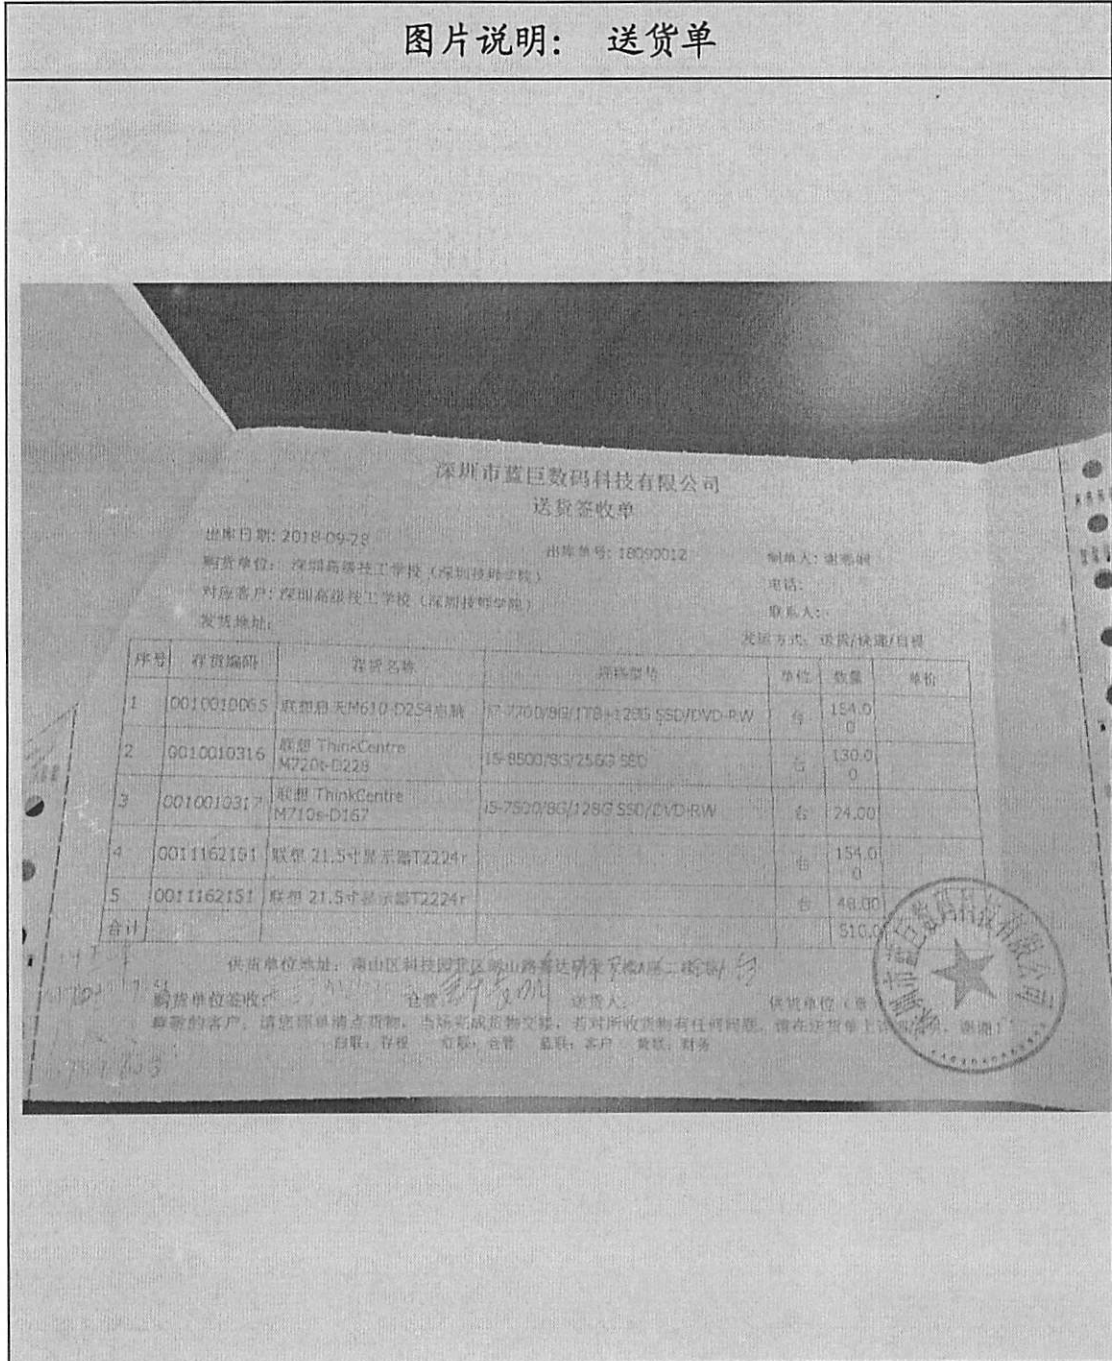 图片说明： 送货单
深圳市蓝巨数码科技有限公司
送货签收单
出库日期: 2018-09-28 出库单号: 18090012 制单人:
购货单位: 深圳高级技工学校（深圳技师学院） 电话:
对应客户: 深圳高级技工学校（深圳技师学院） 联系人:
发货地址: 发运方式: 送货/快递/自提
序号 存货编码 存货名称 规格型号 单位 数量 单价
1 0010010065 联想启天M610-D254电脑 i7-7700/8G/1TB+128G SSD/DVD-RW 台 154.00
2 0010010316 联想 ThinkCentre M720t-D228 I5-8500/8G/256G SSD 台 130.00
3 0010010317 联想 ThinkCentre M710s-D167 i5-7500/8G/128G SSD/DVD-RW 台 24.00
4 0011162151 联想 21.5寸显示器T2224r 台 154.00
5 0011162151 联想 21.5寸显示器T2224r 台 48.00
合计 510.0
供货单位地址: 南山区科技园北区朗山路
购货单位签收: 仓管: 送货人: 供货单位（章
尊敬的客户，请您原单清点货物，当场完成货物交接，若对所收货物有任何问题，请在送货单上 谢谢！
白联：存根 红联：仓管 蓝联：客户 黄联：财务
深圳市蓝巨数码科技有限公司